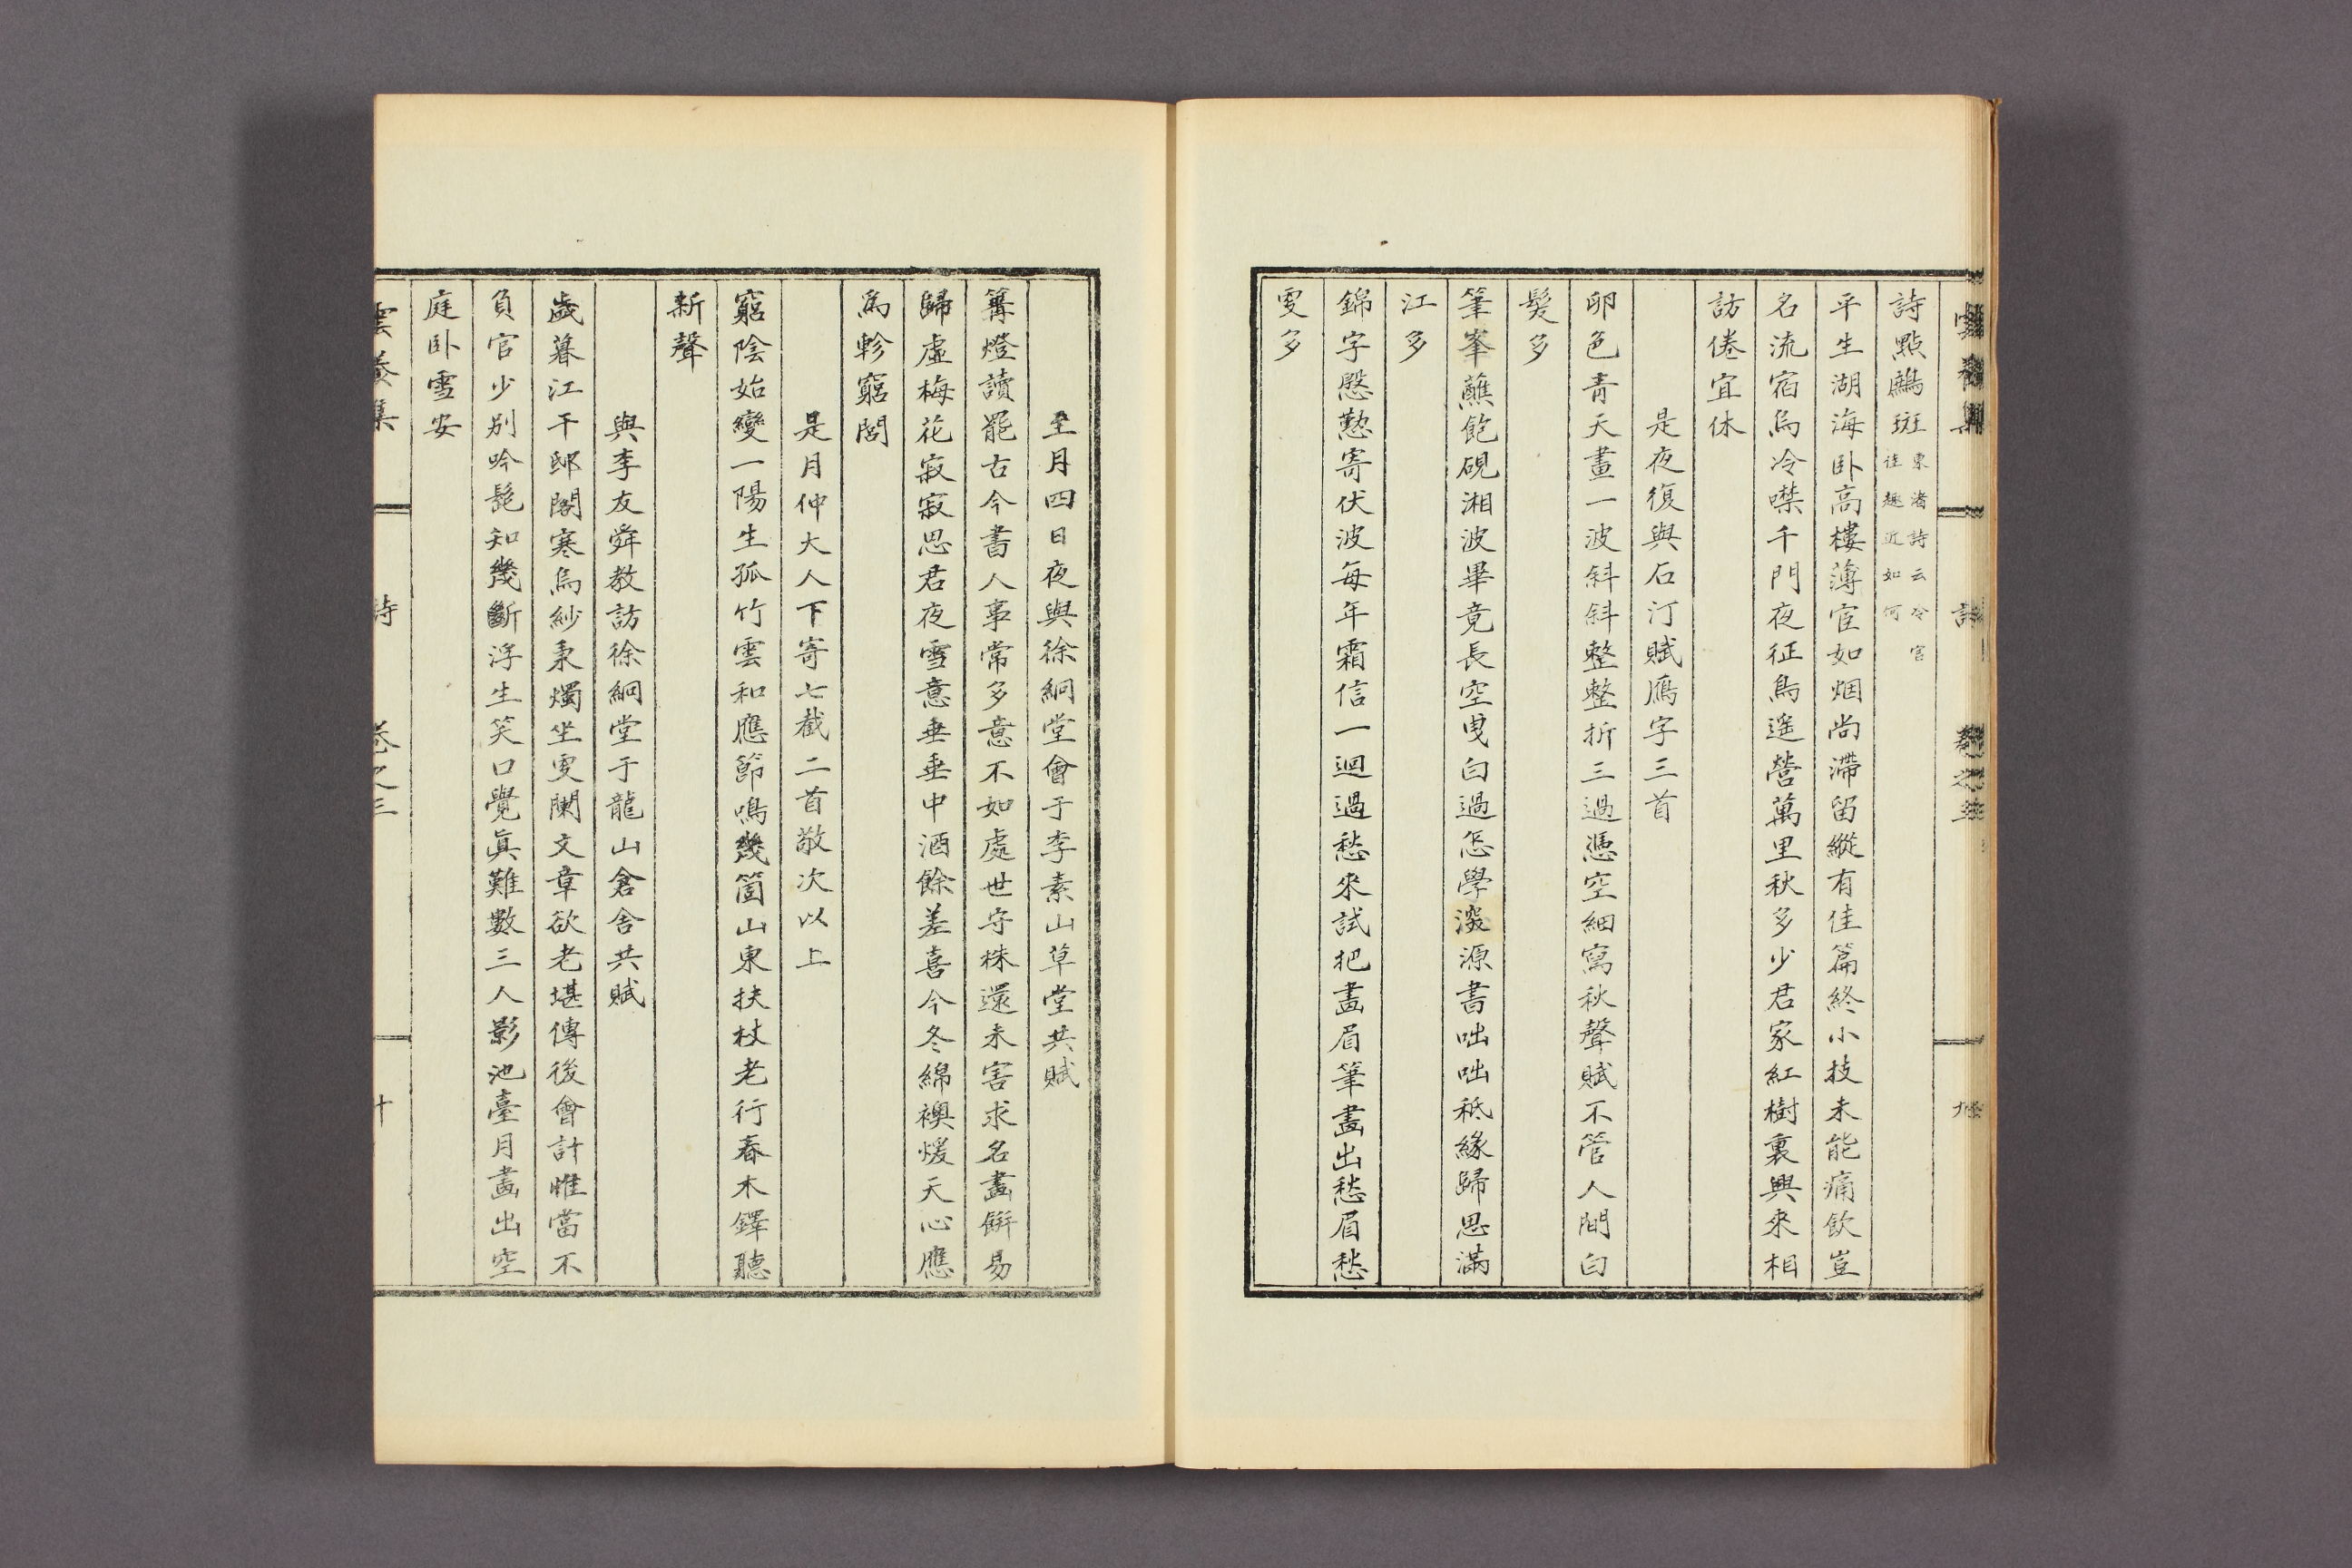 詩點鷓斑東渚詩云冷官佳趣近如何
平生湖海卧高樓薄宦如烟尚滯留縱有佳篇終小技未能痛飮豈
名流宿烏冷噤千門夜征鳥遙營萬里秋多少君家紅樹裏興來相
訪倦宜休
是夜復與石汀賦鴈字三首
卵色靑天畫一波斜斜整整折三過憑空細寫秋聲賦不管人間白
髮多
筆峯蘸飽硯湘波畢竟長空曳白過怎學深源書咄咄秪緣歸思滿
江多
錦字慇懃寄伏波每年霜信一迴過愁來試把畵眉筆畵出愁眉愁
更多
至月四日夜與徐絅堂會于李素山草堂共賦
篝燈讀罷古今書人事常多意不如處世守株還未害求名畵餠易
歸虛梅花寂寂思君夜雪意垂垂中酒餘差喜今冬綿襖煖天心應
爲軫窮閭
是月仲大人下寄七截二首敬次以上
窮陰始變一陽生孤竹雲和應節鳴幾箇山東扶杖老行春木鐸聽
新聲
與李友舜敎訪徐絅堂于龍山倉舍共賦
歲暮江干邸閣寒烏紗秉燭坐更闌文章欲老堪傳後會計惟當不
負官少別吟髭知幾斷浮生笑口覺眞難數三人影池臺月畵出空
庭卧雪安
詩
卷之三
十